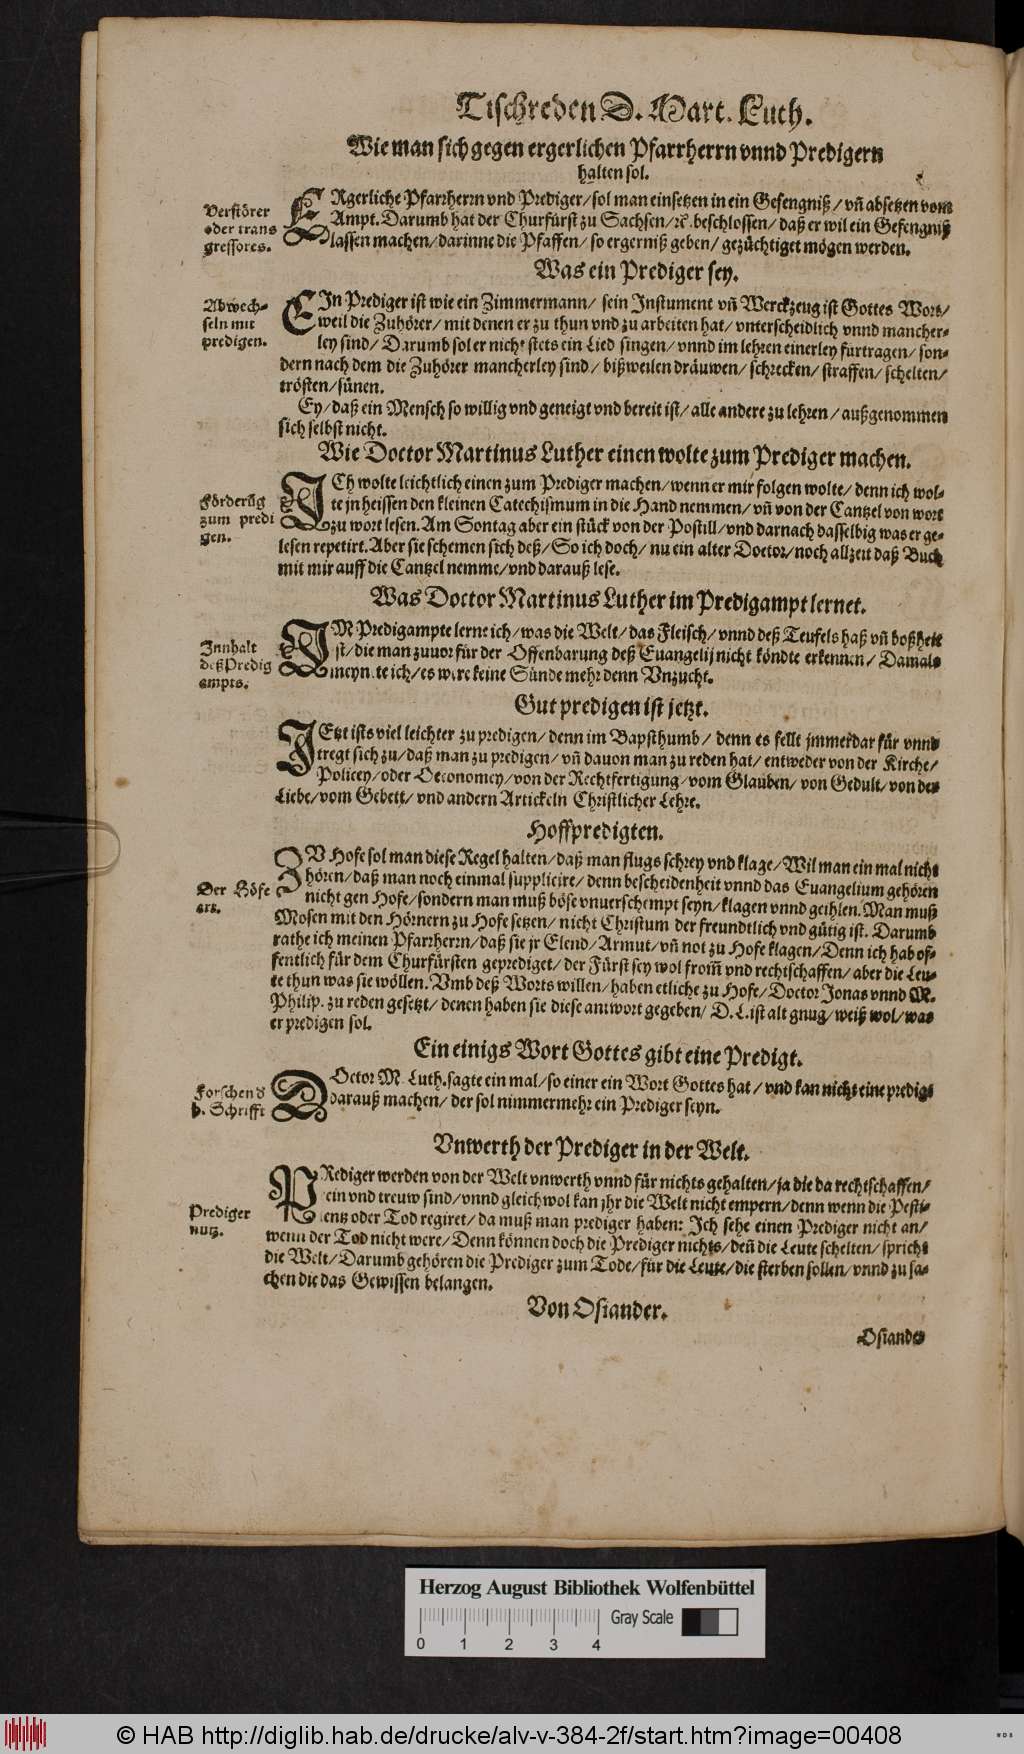 Tischreden D. Mart. Luth.
Wie man sich gegen ergerlichen Pfarrherrn vnnd Predigern
halten sol.
Verstörer
oder trans
gressores.
ERgerliche Pfarrherrn vnd Prediger/sol man einsetzen in ein Gefengniß/ vñ absetzen vom
Ampt. Darumb hat der Churfürst zu Sachsen/ꝛc̃. beschlossen/ daß er wil ein Gefengniß
lassen machen/darinne die Pfaffen/ so ergerniß geben/ gezüchtiget mögen werden.
Was ein Prediger sey.
Abwech-
seln mit
predigen.
EIn Prediger ist wie ein Zimmermann/ sein Instument vñ Werckzeug ist Gottes Wort/
weil die Zuhörer/ mit denen er zu thun vnd zu arbeiten hat/ vnterscheidlich vnnd mancher-
ley sind/ Darumb sol er nicht stets ein Lied singen/ vnnd im lehren einerley furtragen/ son-
dern nach dem die Zuhörer mancherley sind/ bißweilen dräuwen/ schrecken/ straffen/ schelten/
trösten/ sünen.
Ey/daß ein Mensch so willig vnd geneigt vnd bereit ist/ alle andere zu lehren/ außgenommen
sich selbst nicht.
Wie Doctor Martinus Luther einen wolte zum Prediger machen.
Förderũg
zum predi
gen.
ICh wolte leichtlich einen zum Prediger machen/wenn er mir folgen wolte/ denn ich wol-
te jn heissen den kleinen Catechismum in die Hand nemmen/ vñ von der Cantzel von wort
zu wort lesen. Am Sontag aber ein stück von der Postill/ vnd darnach dasselbig was er ge-
lesen repetirt. Aber sie schemen sich deß/ So ich doch/ nu ein alter Doctor/noch allzeit daß Buch
mit mir auff die Cantzel nemme/vnd darauß lese.
Was Doctor Martinus Luther im Predigampt lernet.
Innhalt
deß Predig
ampts.
IM Predigampte lerne ich/ was die Welt/ das Fleisch/ vnnd deß Teufels haß vñ boßheit
ist/ die man zuuor für der Offenbarung deß Euangelij nicht köndte erkennen/ Damals
meynete ich/ es were keine Sünde mehr denn Vnzucht.
Gut predigen ist jetzt.
IEtzt ists viel leichter zu predigen/ denn im Bapsthumb/ denn es fellt jmmerdar für vnnd
tregt sich zu/ daß man zu predigen/ vñ dauon man zu reden hat/ entweder von der Kirche/
Policey/oder Oeconomey/von der Rechtfertigung/ vom Glauben/ von Gedult/ von der
Liebe/vom Gebett/ vnd andern Artickeln Christlicher Lehre.
Hoffpredigten.
Der Höfe
art.
ZV Hofe sol man diese Regel halten/ daß man flugs schrey vnd klage/ Wil man ein mal nicht
hören/ daß man noch einmal supplicire/ denn bescheidenheit vnnd das Euangelium gehören
nicht gen Hofe/ sondern man muß böse vnuerschempt seyn/ klagen vnnd geihlen. Man muß
Mosen mit den Hörnern zu Hofe setzen/ nicht Christum der freundtlich vnd gütig ist. Darumb
rathe ich meinen Pfarrherrn/ daß sie jr Elend/ Armut/ vñ not zu Hofe klagen/ Denn ich hab of-
fentlich für dem Churfürsten geprediget/ der Fürst sey wol from̃ vnd rechtschaffen/ aber die Leu-
te thun was sie wöllen. Vmb deß Worts willen/ haben etliche zu Hofe/ Doctor Jonas vnnd M.
Philip. zu reden gesetzt/ denen haben sie diese antwort gegeben/ D. L. ist alt gnug/ weiß wol/ was
er predigen sol.
Ein einigs Wort Gottes gibt eine Predigt.
Forschen d
h. Schrifft
DOctor M. Luth. sagte ein mal/ so einer ein Wort Gottes hat/ vnd kan nicht eine predigt
darauß machen/ der sol nimmermehr ein Prediger seyn.
Vnwerth der Prediger in der Welt.
Prediger
nutz.
PRediger werden von der Welt vnwerth vnnd für nichts gehalten/ ja die da rechtschaffen/
rein vnd treuw sind/ vnnd gleichwol kan jhr die Welt nicht empern/ denn wenn die Pesti-
lentz oder Tod regiret/ da muß man prediger haben: Ich sehe einen Prediger nicht an/
wenn der Tod nicht were/ Denn können doch die Prediger nichts/ deñ die Leute schelten/ spricht
die Welt/ Darumb gehören die Prediger zum Tode/ für die Leute/ die sterben sollen/ vnnd zu sa-
chen die das Gewissen belangen.
Von Osiander.
Osiander
Herzog August Bibliothek Wolfenbüttel
Gray Scale
0 1 2 3 4
© HAB http://diglib.hab.de/drucke/alv-v-384-2f/start.htm?image=00408